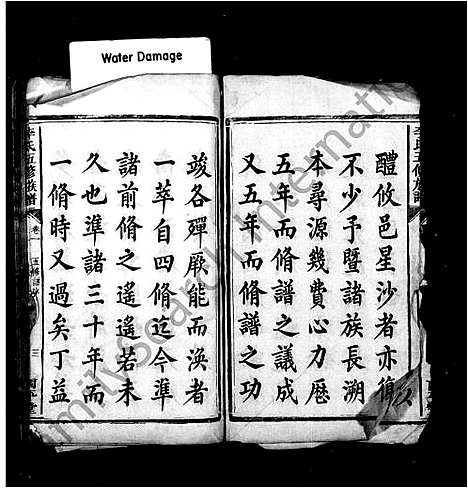 Water Damage
李氏五修族譜
醴攸邑星沙者亦復
不少予暨諸族長溯
本尋源幾費心力歷
五年而脩譜之議成
又五年而脩譜之功
竣各殫厥能而渙者
一萃自四脩迄今準
諸前脩之遙遙若未
久也準諸三十年而
一脩時又過矣丁益
李氏五修族譜
卷一
三